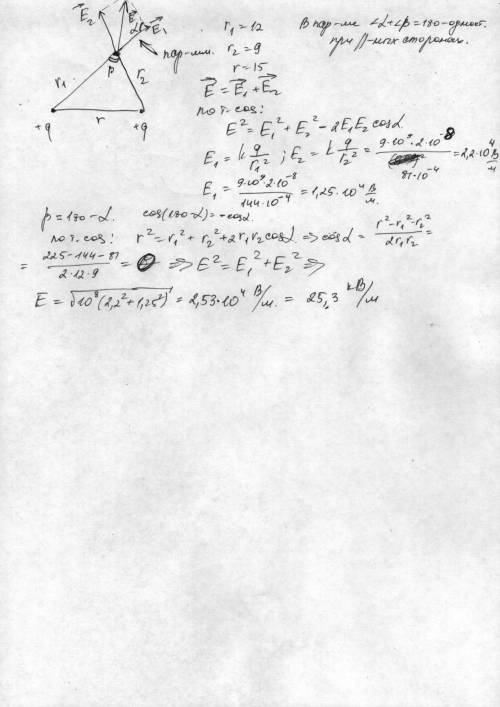 E⃗₂ E⃗ E⃗₁
α β
r₁ = 12
В пар-ме ∠α+∠β=180-одност.
при ||-ных сторонах.
пар-мм.
r₂ = 9
r = 15
β
r₁ r₂
r
+q +q
E⃗ = E⃗₁ + E⃗₂
по т-cos:
E² = E₁² + E₂² - 2E₁E₂ cosα
E₁ = k q/r₁² ; E₂ = k q/r₂² = 9·10⁹·2·10⁻⁸/81·10⁻⁴ = 2,2·10⁴ В/м
E₁ = 9·10⁹·2·10⁻⁸/144·10⁻⁴ = 1,25·10⁴ В/м.
β = 180-α. cos(180-α)=-cosα.
по т-cos: r² = r₁² + r₂² + 2r₁r₂cosα ⇒ cosα = r²-r₁²-r₂²/2r₁r₂ =
= 225-144-81/2·12·9 = 0 ⇒ E² = E₁² + E₂² ⇒
E = √10⁸(2,2²+1,25²) = 2,53·10⁴ В/м. = 25,3 кВ/м